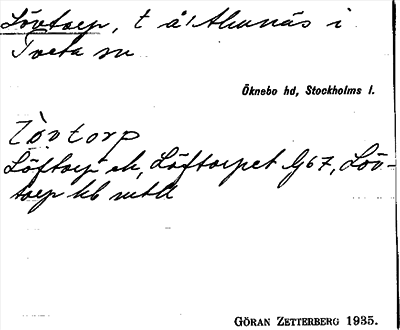 Lövtorp, t å! Alunäs i
Tveta sn
Öknebo hd, Stockholms l.
Lòvtorp
Löftorp ek, Löftorpet Gj67, Löv-
torp kb mtll
GÖRAN ZETTERBERG 1935.